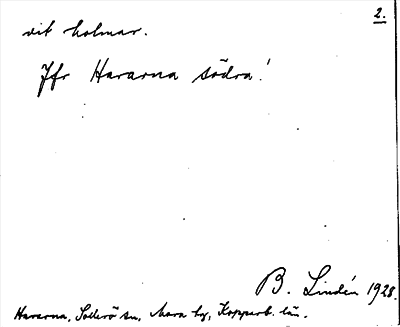 2.
vit holmar.
Jfr Hararna södra!
B. Lindén 1928.
Hararna, Solerö sn, Mora by, Kopparb. län.